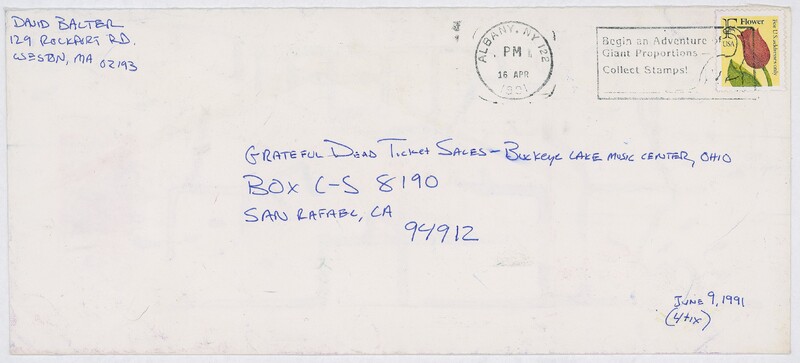 DAVID BALTER
129 ROCKPORT RD.
WESTON, MA 02193
ALBANY, NY 122
PM
16 APR
1991
Begin an Adventure of
Giant Proportions
Collect Stamps!
F Flower
USA
For U.S. addresses only
GRATEFUL DEAD TICKET SALES - BUCKEYE LAKE MUSIC CENTER, OHIO
BOX C-S 8190
SAN RAFAEL, CA
94912
JUNE 9, 1991
(4 tix)